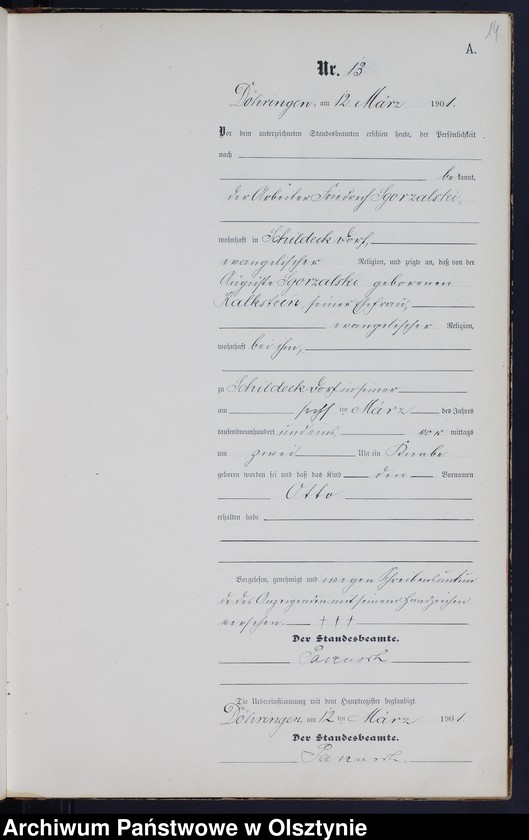 14
A.
Nr. 13
Döhringen, am 12 März 1901.
Vor dem unterzeichneten Standesbeamten erschien heute, der Persönlichkeit
nach
be kannt,
der Arbeiter Friedrich Sgorzalski,
wohnhaft in Schildeck Dorf,
evangelischer Religion, und zeigte an, daß von der
Auguste Sgorzalski geborenen
Kalkstein, seiner Ehefrau,
evangelischer Religion,
wohnhaft bei ihm,
zu Schildeck Dorf in seiner
am sechs ten März des Jahres
tausendneunhundert und eins vor mittags
um zwei Uhr ein Knabe
geboren worden sei und daß das Kind den Vornamen
Otto
erhalten habe
Vorgelesen, genehmigt und wegen Schreibensunkun
de des Anzeigenden mit seinem Handzeichen
versehen. † † †
Der Standesbeamte.
Die Uebereinstimmung mit dem Hauptregister beglaubigt.
Döhringen, am 12 ten März 1901.
Der Standesbeamte.
Archiwum Państwowe w Olsztynie